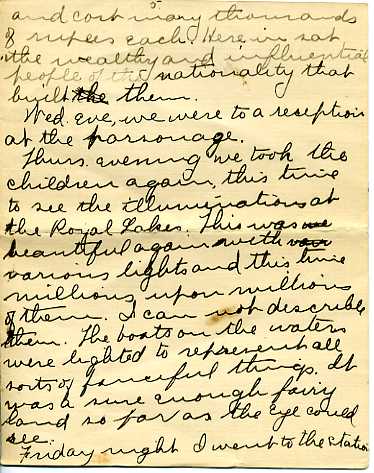 5
and cost many thousands
of rupees each. Here in sat
the wealthy and influential
people of the nationality that
built the them.
Wed. Eve, we were to a reception
at the parsonage.
Thurs. evening we took the
children again, this time
to see the illuminations at
the Royal Lakes. This was
beautiful again with
various lights and this time
millions upon millions
of them. I can not describe
them. The boats on the waters
were lighted to represent all
sorts of fanciful things. It
was a sure enough fairy
land so far as the Eye could
see.
Friday night I went to the station